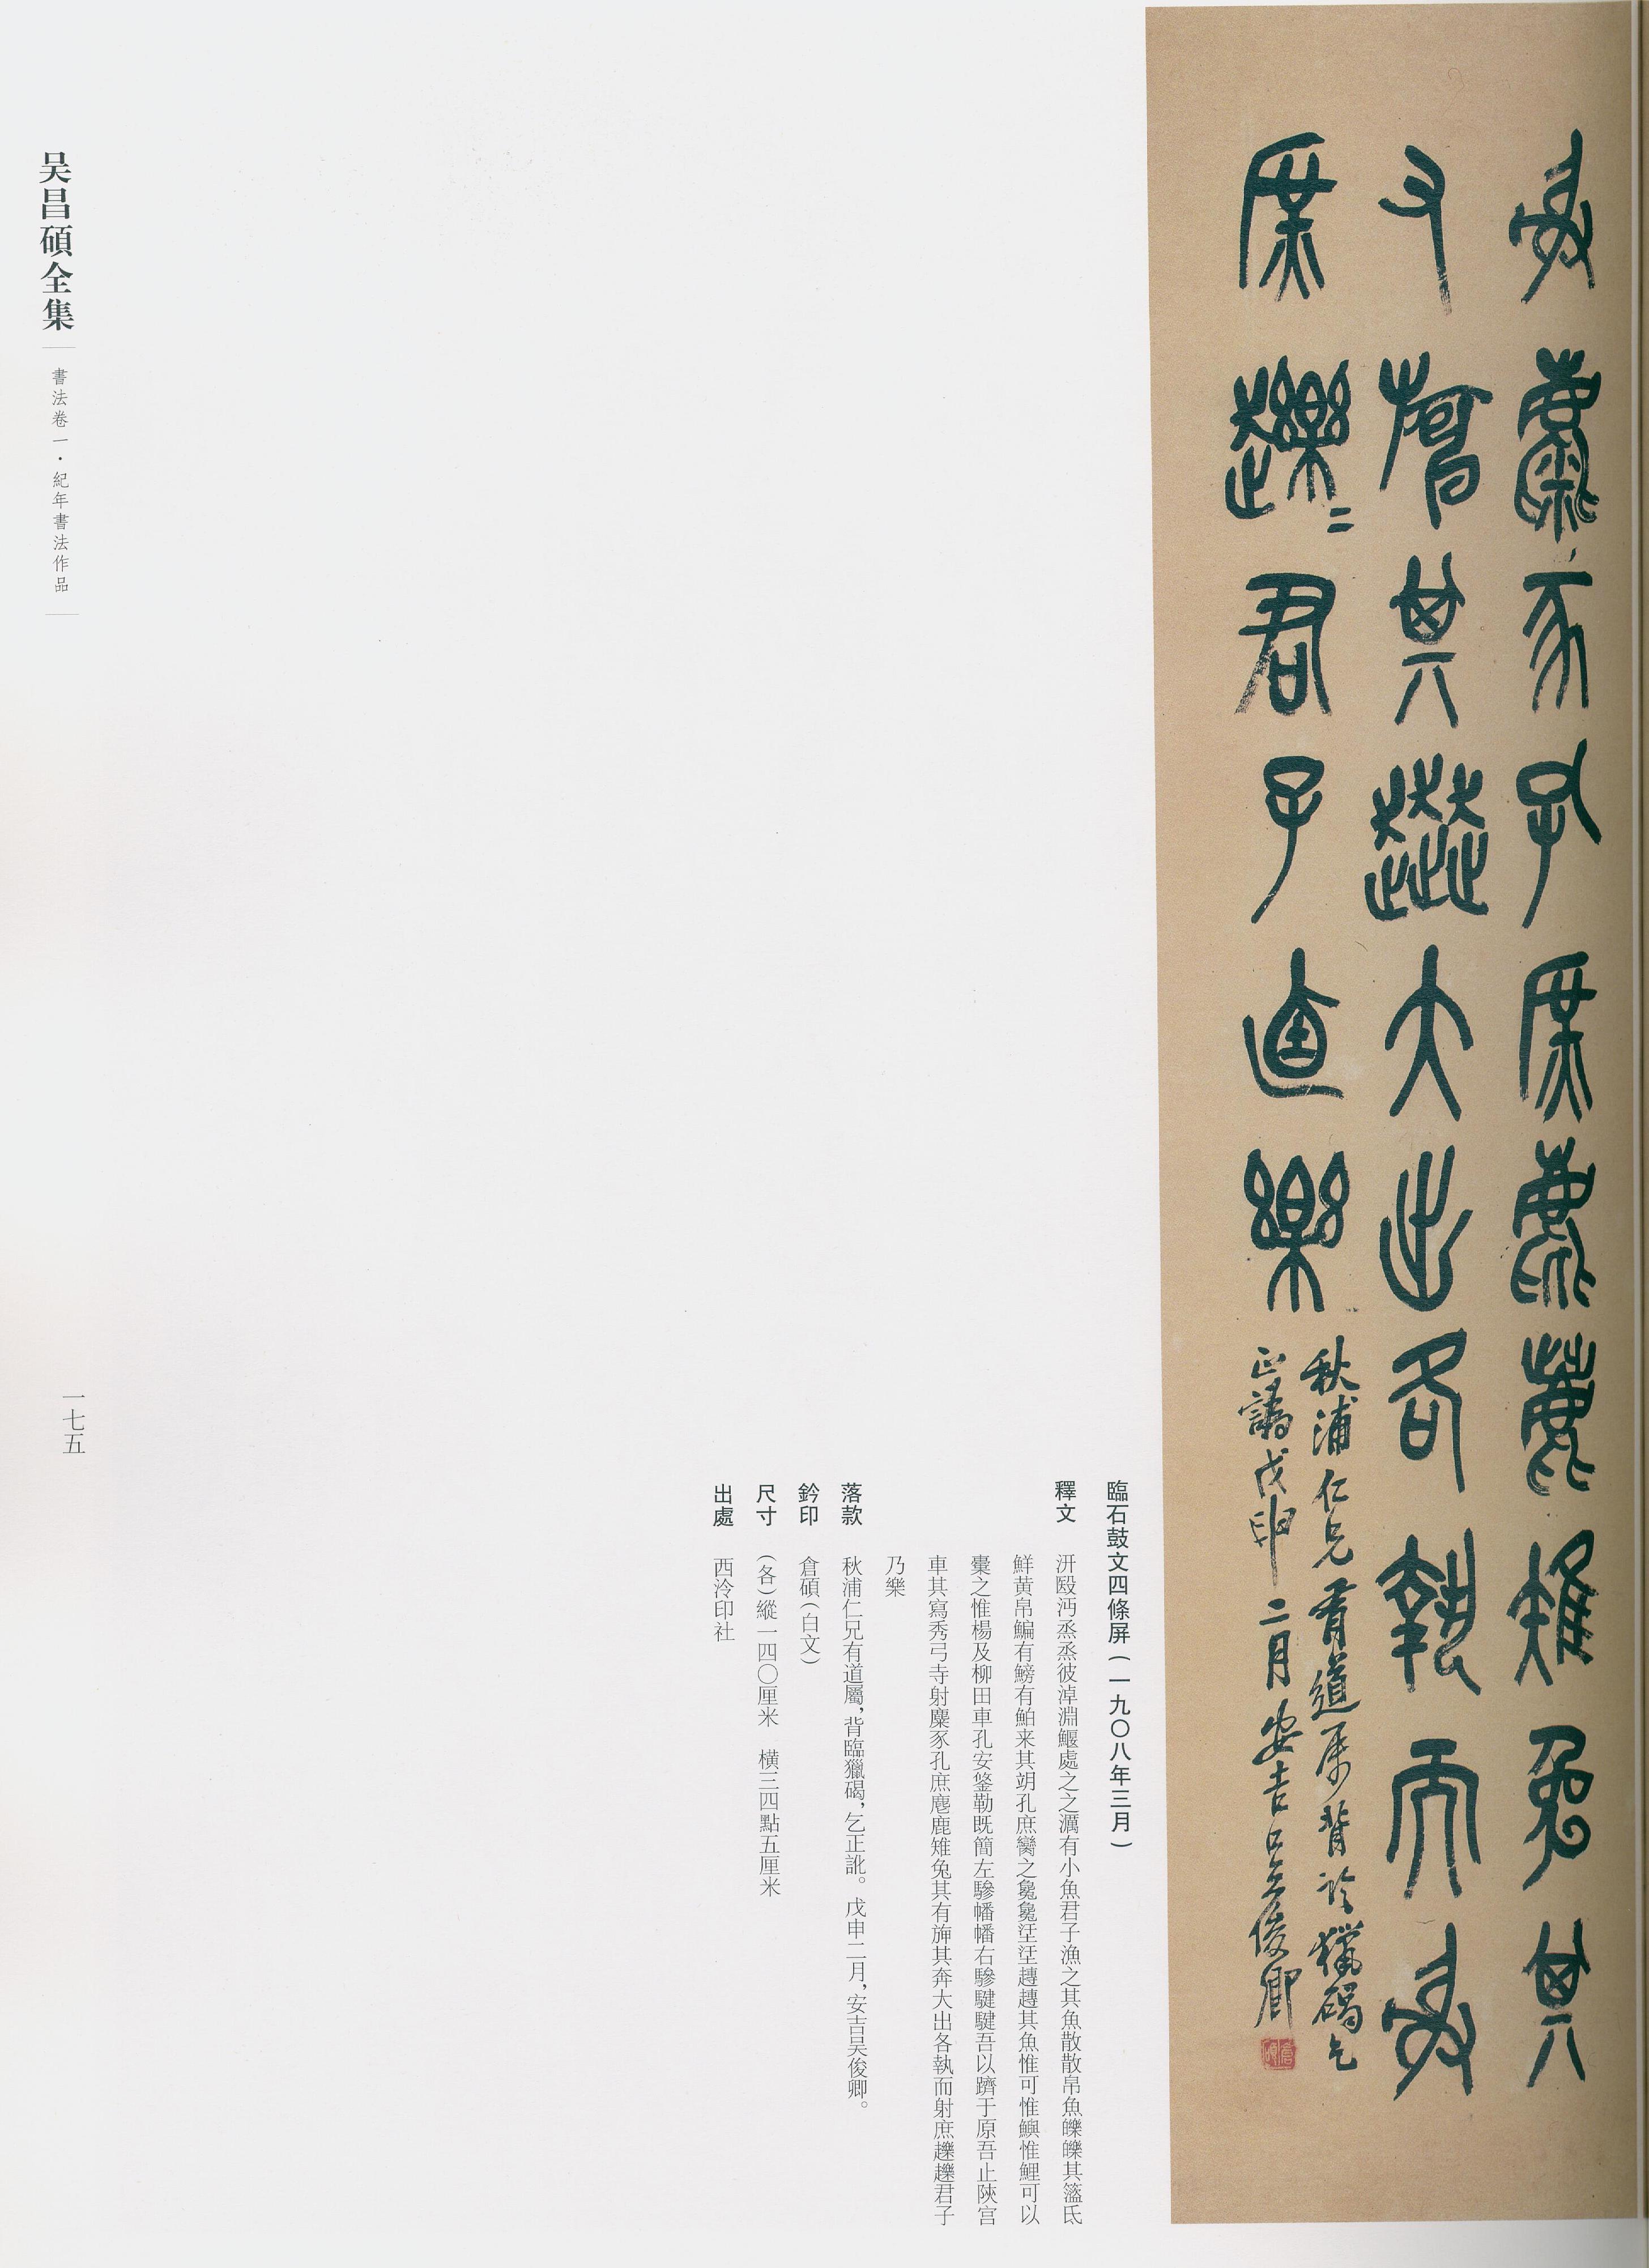 射麋豕孔庶麀鹿雉兔其
有旃其奔大出各執而射
庶趮=君子迺樂
秋浦仁兄有道屬背臨獵碣乞
正譌戊申二月安吉吳俊卿
臨石鼓文四條屏(一九〇八年三月)
釋文 汧殹沔烝烝彼淖淵鰋處之之澫有小魚君子漁之其魚散散帛魚皪皪其籃氐
鮮黄帛鯿有鰟有鮊来其朔孔庶臠之㲋㲋汪汪趭趭其魚惟可惟鱮惟鯉可以
橐之惟楊及柳田車孔安鋚勒既簡左驂旛旛右驂騝騝吾以隮于原吾止陝宫
車其寫秀弓寺射麋豕孔庶麀鹿雉兔其有旃其奔大出各執而射庶趮趮君子
乃樂
落款 秋浦仁兄有道屬,背臨獵碣,乞正訛。戊申二月,安吉吴俊卿。
鈐印 倉碩(白文)
尺寸 (各)縱一四〇厘米 橫三四點五厘米
出處 西泠印社
吴昌碩全集
書法卷一·紀年書法作品
一七五